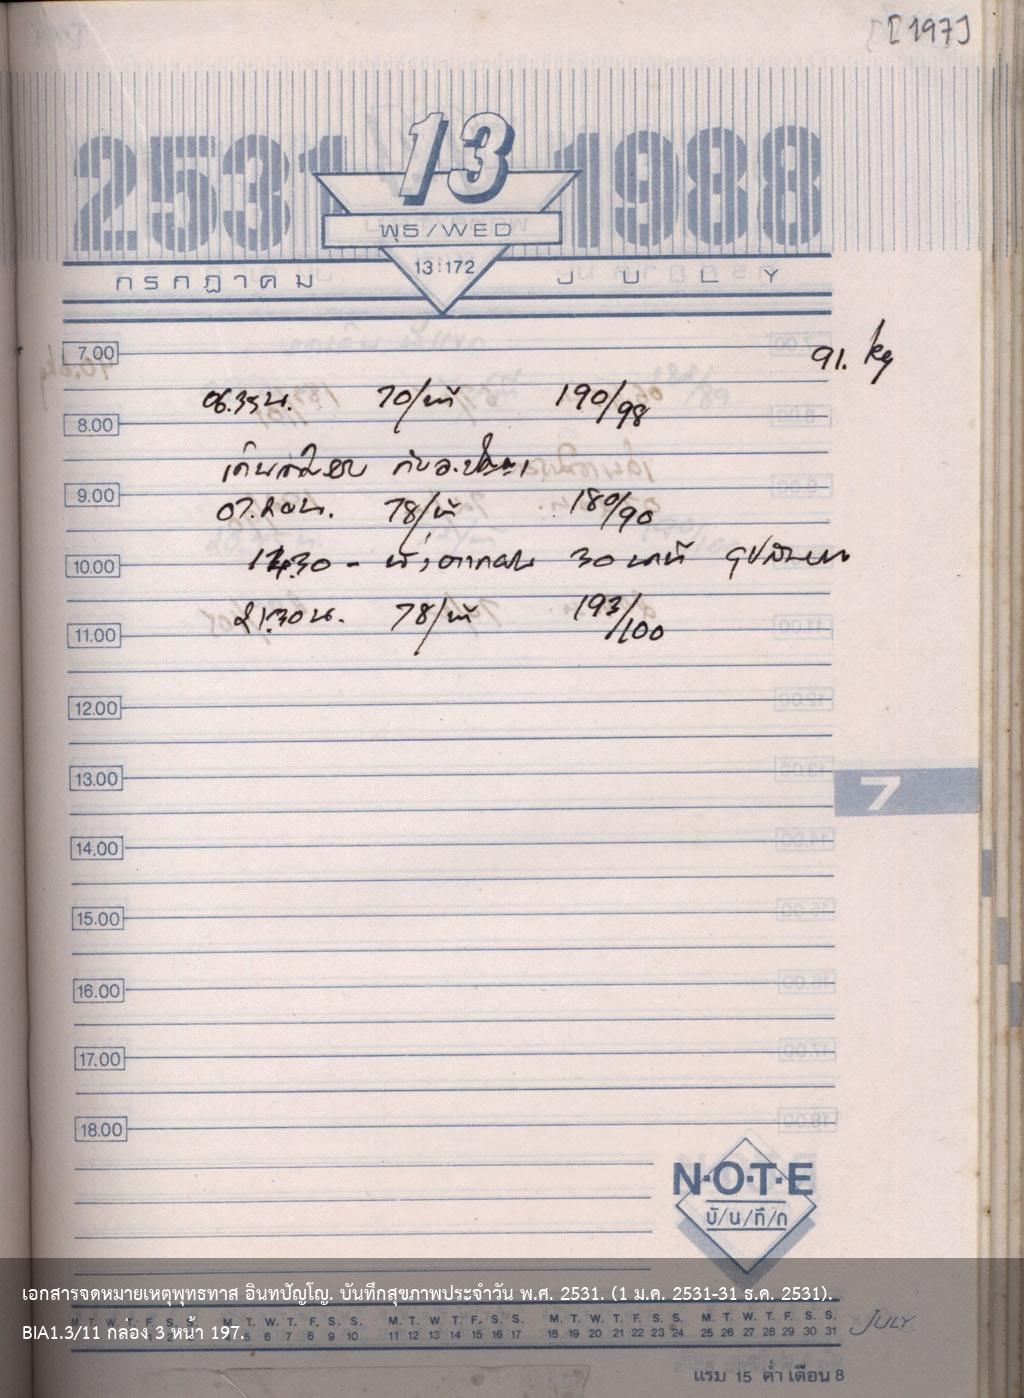 [197]
2531 13 1988
พุธ/WED
13:172
กรกฎาคม JULY
7.00
91. kg
06.35 น. 70/นาที 190/98
8.00
9.00
07.20 น. 78/นาที 180/90
10.00
14.30 - นั่งตากลม 30 นาที
21.30 น. 78/นาที 193/100
11.00
12.00
13.00
7
14.00
15.00
16.00
17.00
18.00
N·O·T·E
บั/น/ทึ/ก
เอกสารจดหมายเหตุพุทธทาส อินทปัญโญ. บันทึกสุขภาพประจำวัน พ.ศ. 2531. (1 ม.ค. 2531-31 ธ.ค. 2531).
M. T. W. T. F. S. S. M. T. W. T. F. S. S. M. T. W. T. F. S. S. M. T. W. T. F. S. S.
BIA1.3/11 กล่อง 3 หน้า 197.
5 6 7 8 9 10 11 12 13 14 15 16 17 18 19 20 21 22 23 24 25 26 27 28 29 30 31 JULY
แรม 15 ค่ำ เดือน 8